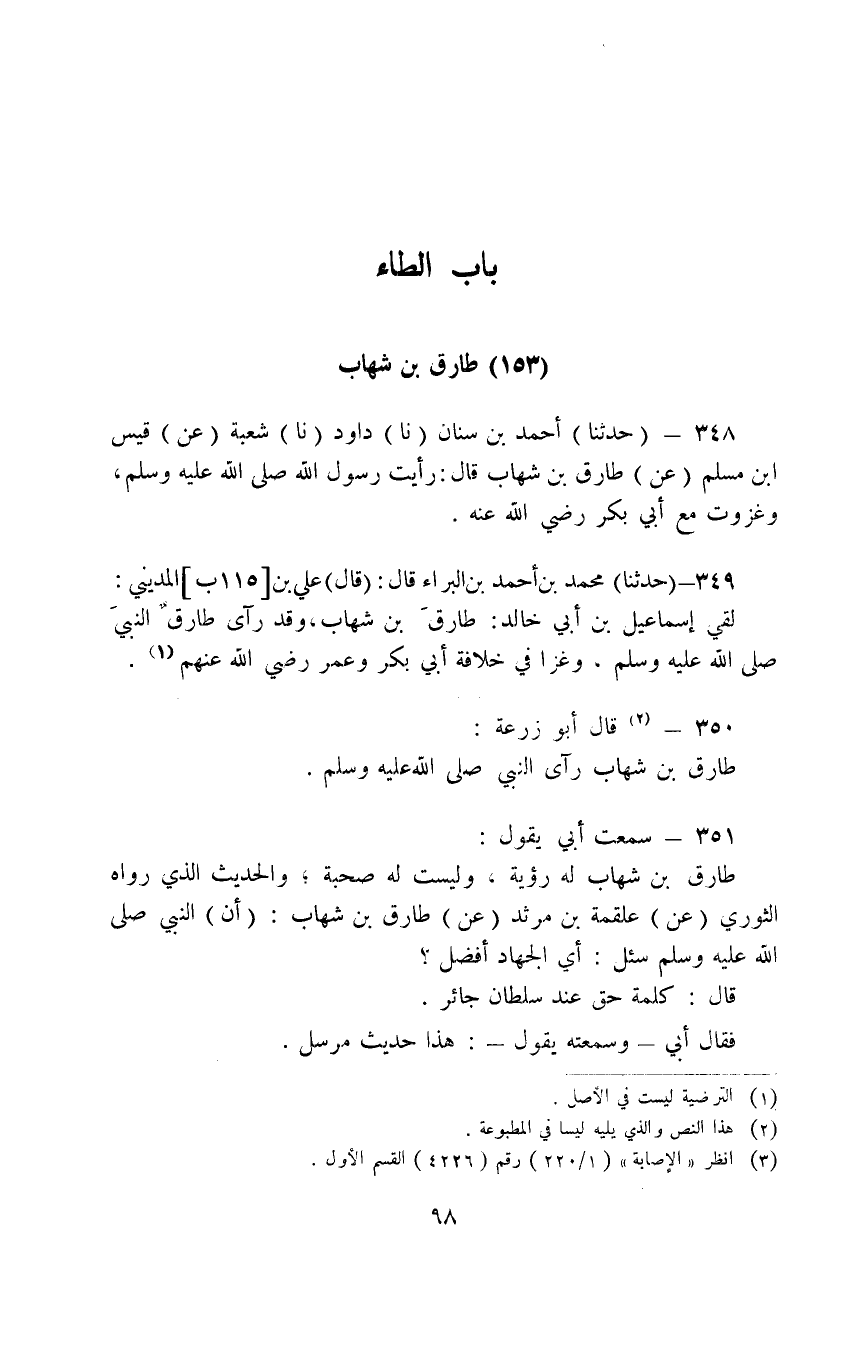 باب الطاء
(١٥٣) طارق بن شهاب
٣٤٨ – (حدثنا) أحمد بن سنان (نا) داود (نا) شعبة (عن) قيس
ابن مسلم (عن) طارق بن شهاب قال: رأيت رسول الله صلى الله عليه وسلم،
وغزوت مع أبي بكر رضي الله عنه .
٣٤٩–(حدثنا) محمد بن أحمد بن البراء قال: (قال) علي بن [١١٥ب] المديني :
لقي إسماعيل بن أبي خالد: طارقَ بن شهاب، وقد رآى طارقٌ النبيَ
صلى الله عليه وسلم . وغزا في خلافة أبي بكر وعمر رضي الله عنهم (١) .
٣٥٠ – (٢) قال أبو زرعة :
طارق بن شهاب رآى النبي صلى الله عليه وسلم .
٣٥١ – سمعت أبي يقول :
طارق بن شهاب له رؤية ، وليست له صحبة ؛ والحديث الذي رواه
الثوري (عن) علقمة بن مرثد (عن) طارق بن شهاب : (أن) النبي صلى
الله عليه وسلم سئل : أي الجهاد أفضل ؟
قال : كلمة حق عند سلطان جائر .
فقال أبي – وسمعته يقول – : هذا حديث مرسل .
(١) الترضية ليست في الأصل .
(٢) هذا النص والذي يليه ليسا في المطبوعة .
(٣) انظر « الإصابة » (٢٢٠/١) رقم (٤٢٢٦) القسم الأول .
٩٨